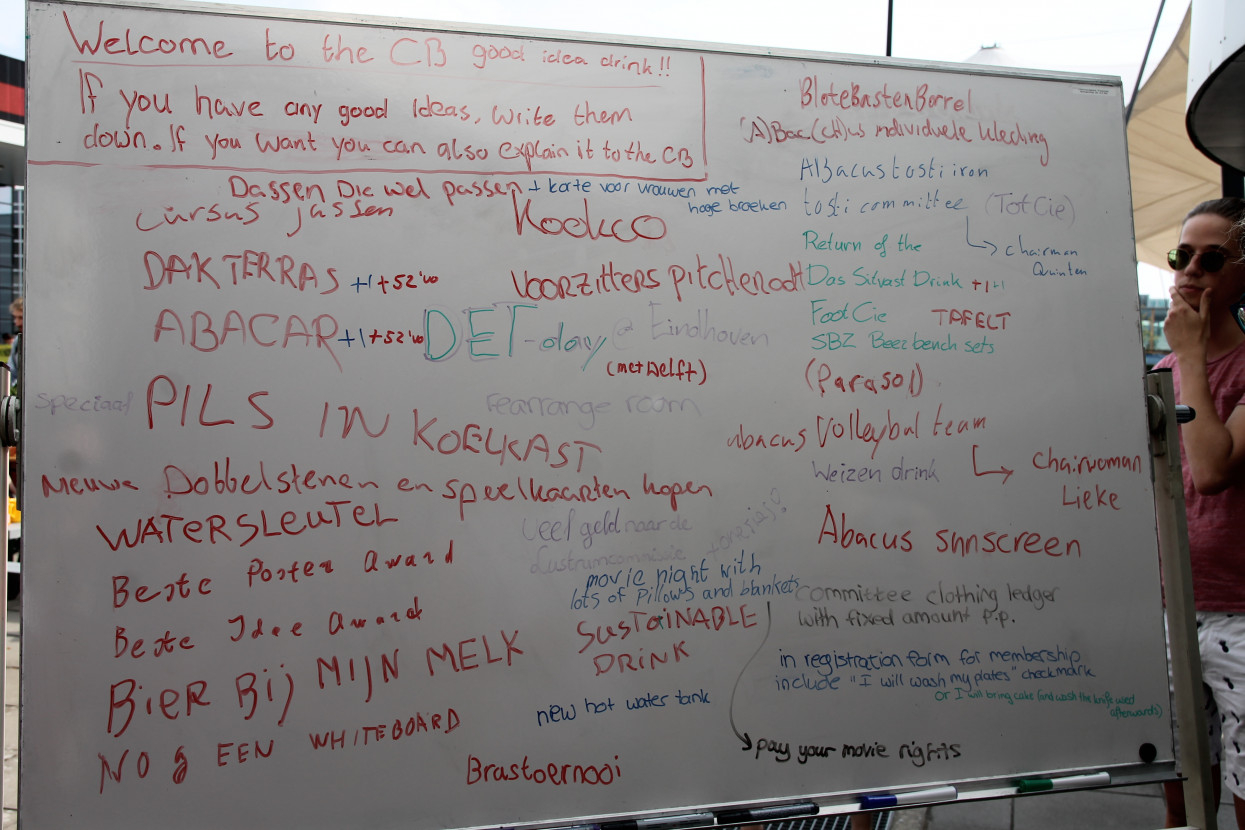 Welcome to the CB good idea drink!!
If you have any good Ideas, write them
down. If you want you can also explain it to the CB
Dassen Die wel passen + korte voor vrouwen met
hoge broeken
cursus jassen
KoekCo
DAKTERRAS +1 +52'wo
Voorzitters pitch
ABACAR +1 +52'wo
DET-day @ Eindhoven
(met Delft)
speciaal PILS IN KOELKAST
rearrange room
Nieuwe Dobbelstenen en speelkaarten kopen
WATERSLEUTEL
veel geld naar de
Lustrumcommissie
Beste Poster Award
movie night with
lots of pillows and blankets
Beste Idee Award
SUSTAINABLE
DRINK
BIER Bij MIJN MELK
new hot water tank
NOg EEN WHITEBOARD
Brastoernooi
BloteBastenBorrel
(A)Bac(ch)us individuele kleding
ABacus tosti iron
tosti committee (TotCie)
chairman
Quinten
Return of the
Das Silvast Drink +1+1
FootCie TAFELT
SBZ Beerbench sets
(Parasol)
abacus Volleybal team
Chairwoman
Lieke
Weizen drink
Abacus sunscreen
committee clothing ledger
with fixed amount p.p.
in registration form for membership
include "I will wash my plates" checkmark
or I will bring cake (and wash the knife used
afterwards)
pay your movie nights